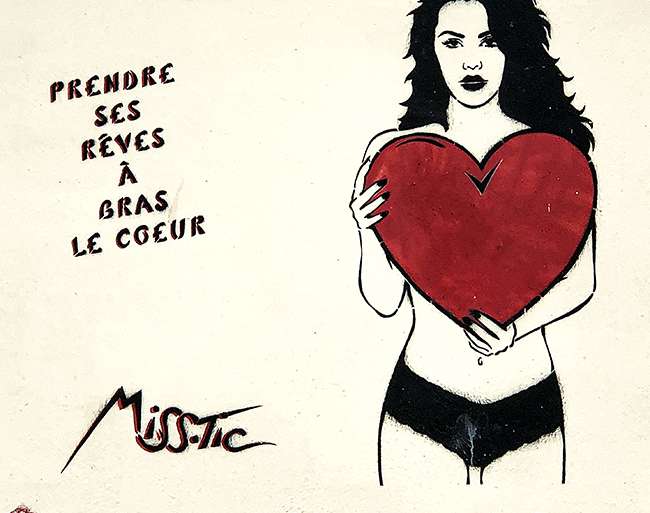 PRENDRE
SES
RÊVES
Â
BRAS
LE COEUR
MISS.TIC